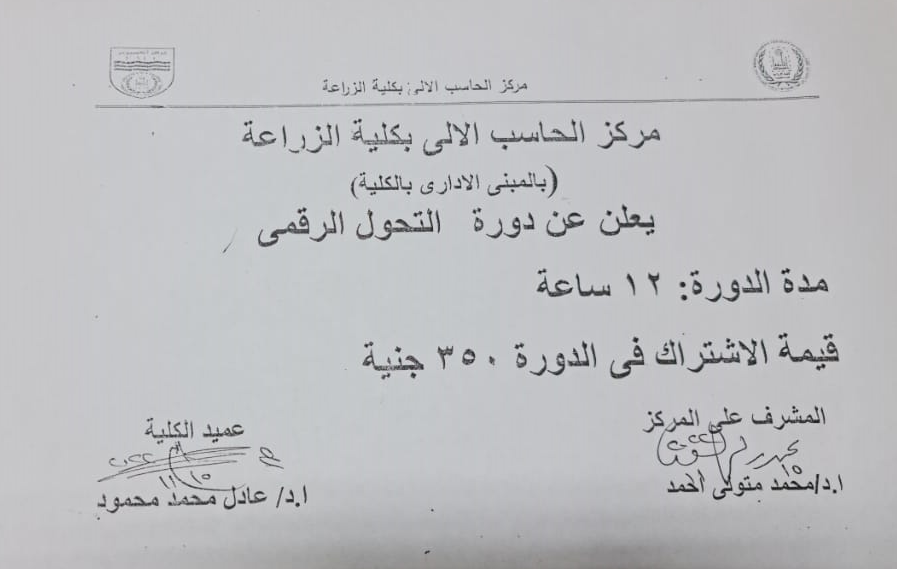 مركز الحاسب الالى بكلية الزراعة
مركز الحاسب الالى بكلية الزراعة
(بالمبنى الادارى بالكلية)
يعلن عن دورة التحول الرقمى
مدة الدورة: ١٢ ساعة
قيمة الاشتراك فى الدورة ٣٥٠ جنية
المشرف على المركز
ا.د/محمد متولى احمد
عميد الكلية
ا.د/ عادل محمد محمود